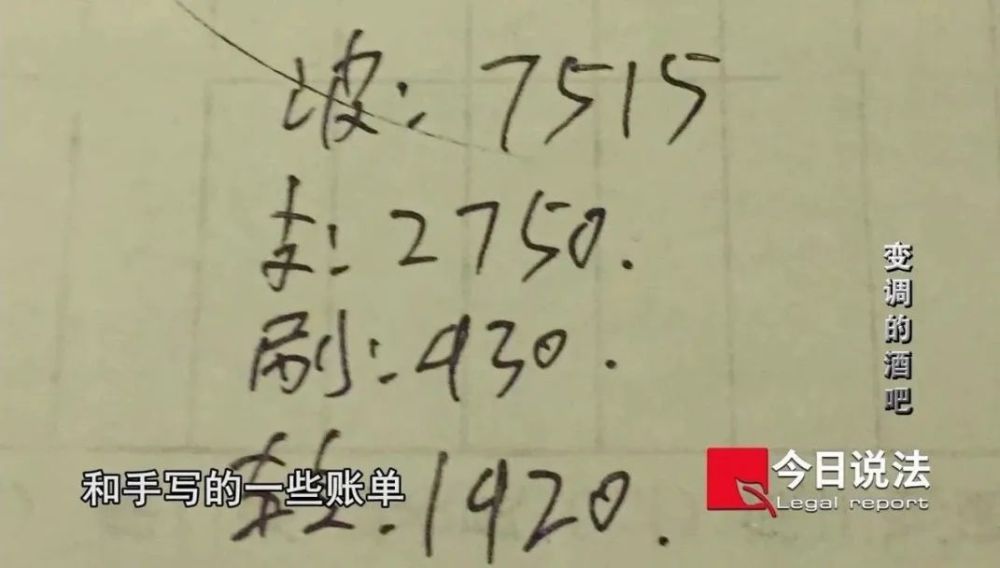 坡: 7515
支: 2750.
刷: 430.
1920.
和手写的一些账单
变调的酒吧
今日说法
Legal report